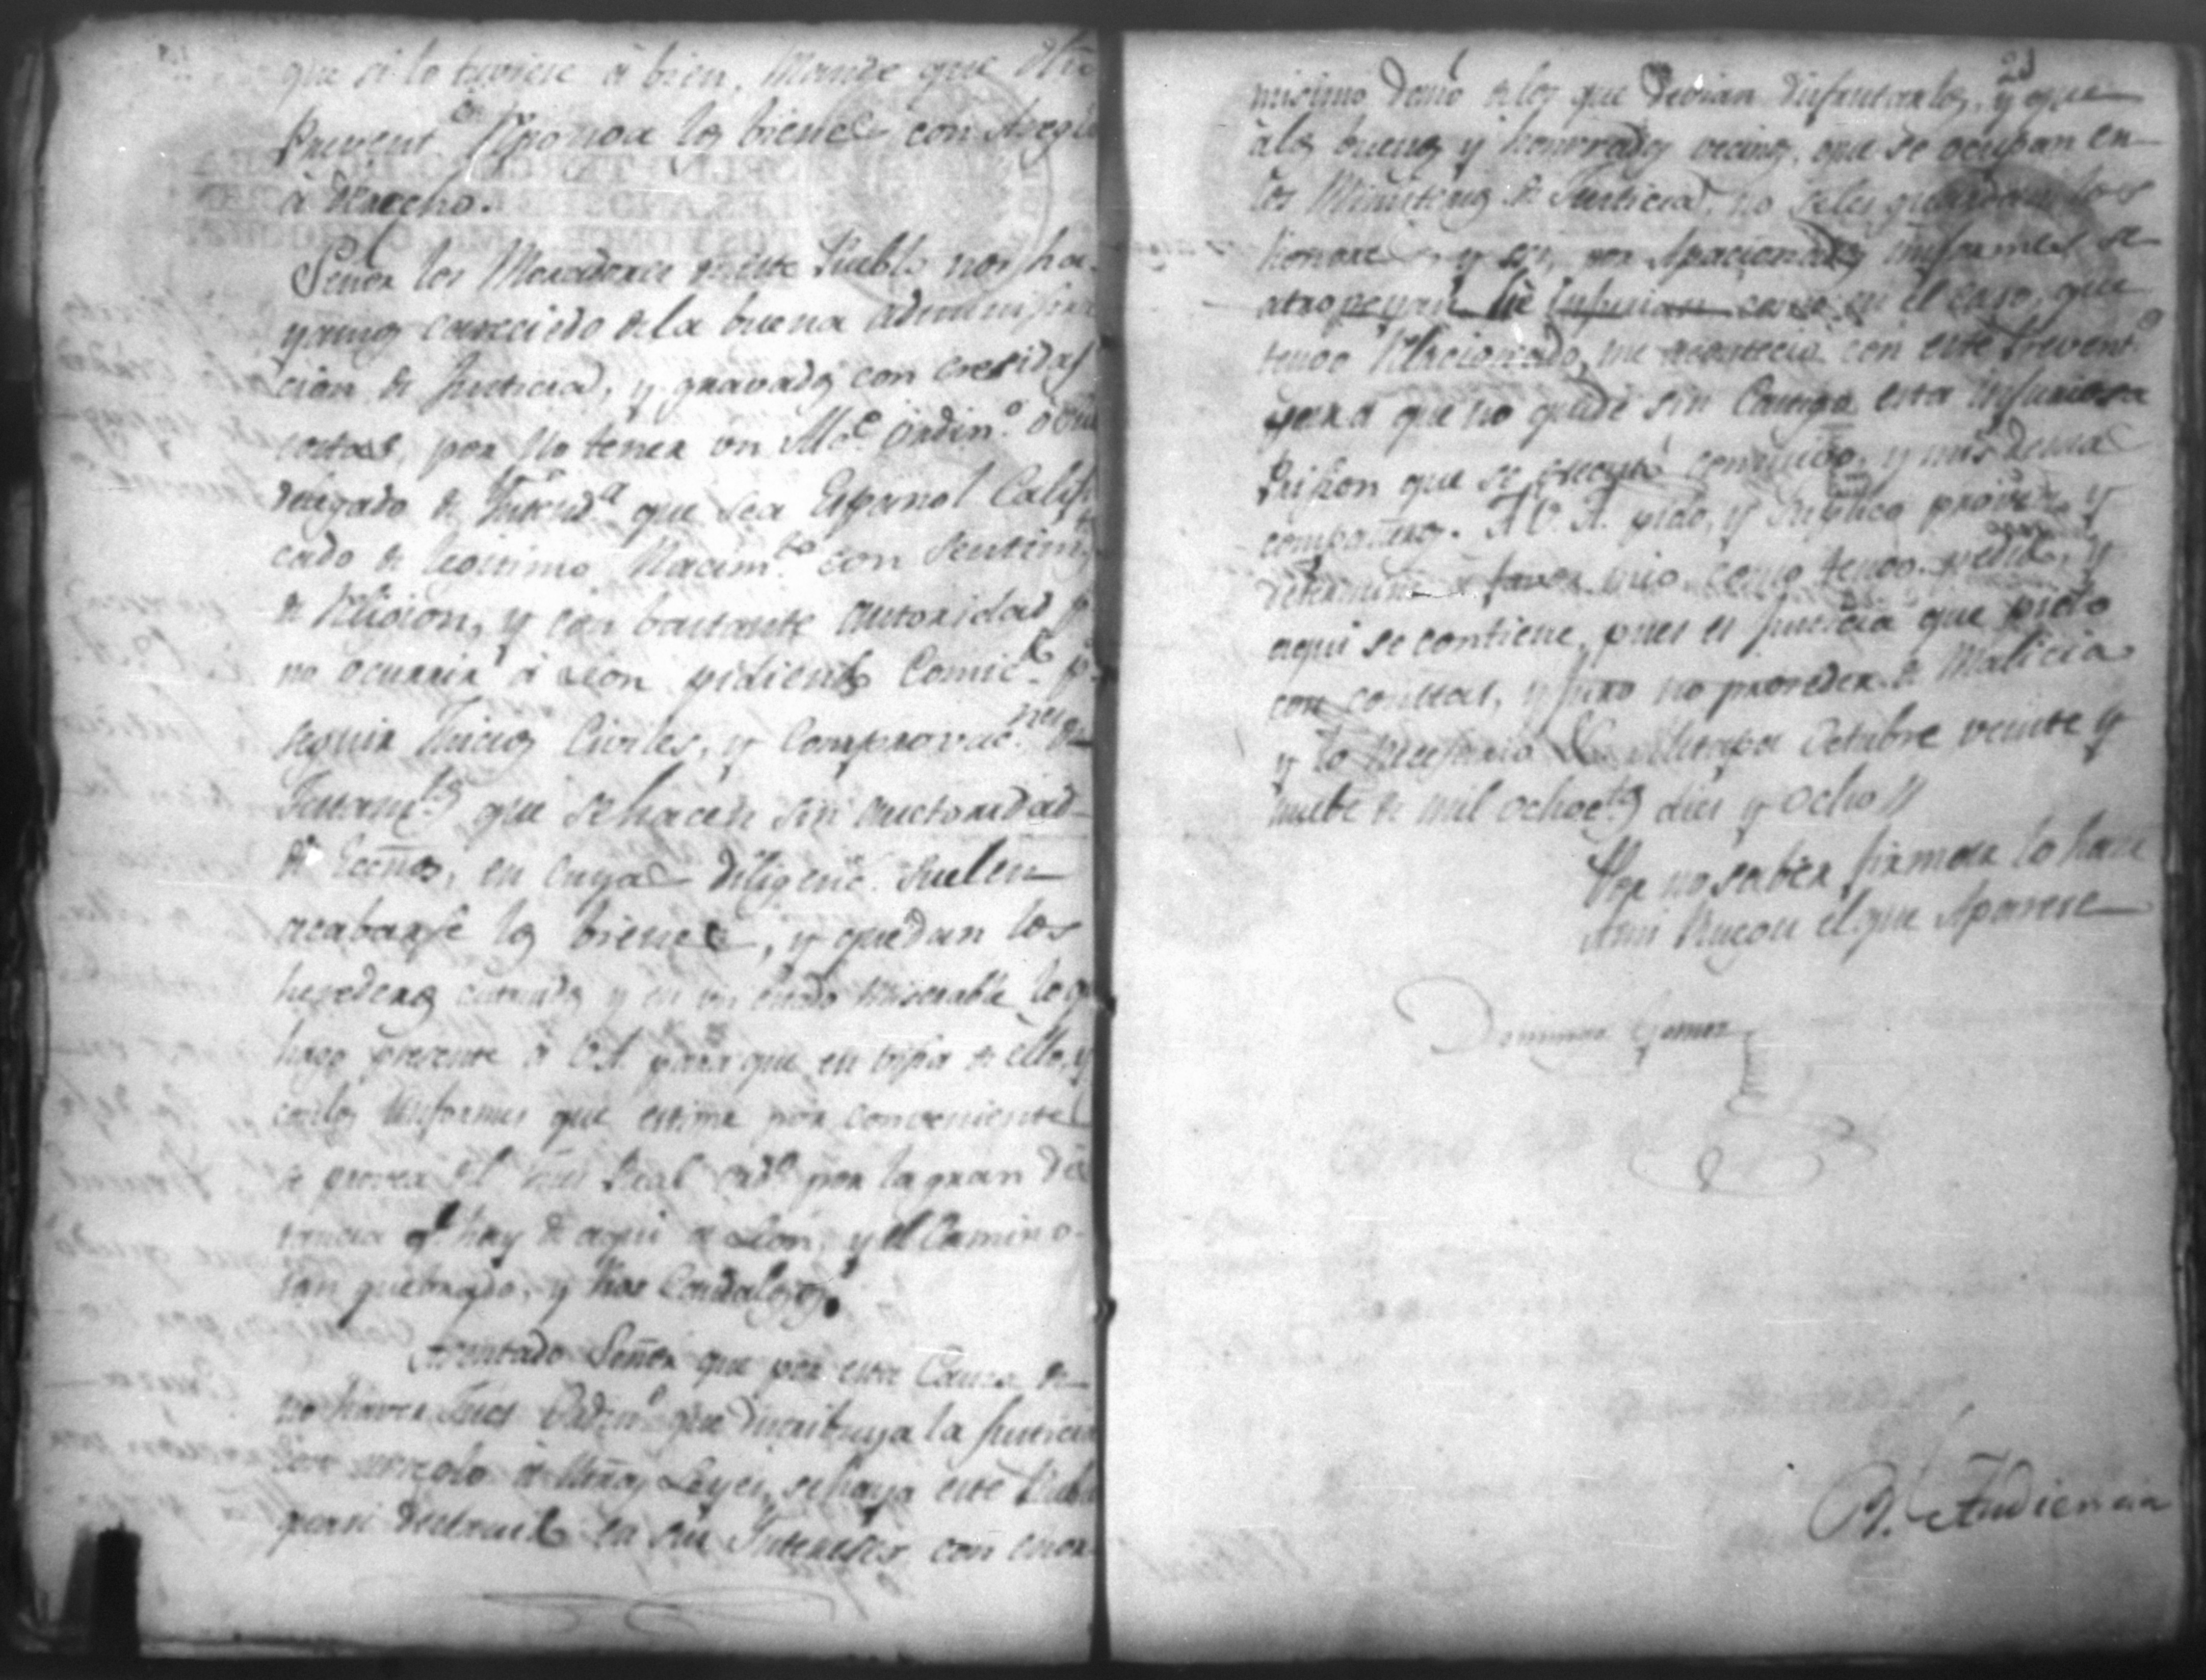 que si lo tuviere â bien, Mande que dho
Prevent.ro Reponga los bienes con Areglo
â derecho.
Señor los Moradores de este Pueblo nos ha-
yamos careciedo dela buena administra
cion de Justicia, y gravados con cresidas
costas, por No tener un Alc.e ordin.o ô sub
delegado de Intend.a que sea Español Calif
cado de legitimo Nacim.to con sentim.tos
de Religion, y con bastante autoridad p.a
no ocurrir â Leon pidiendo Comic.n p.a
seguir Juicios Civiles, y Comprovac.nes de
Testam.tos que se hacen sin auctoridad
de Eccños, en cuyas diligenc.s suelen
acabarse los bienes, y quedan los
herederos y en un estado Miserable, lo q.
hago presente â V.A. para que en vista de ello, y
conlos Informes que estime por convenientes
se provea el por la gran dis
tancia q.e hay de aqui a Leon, y el Camino
tan quebrado, y Rios Caudalosos.
Señor que por esta Causa de
no haver Jues Ordin.o que distribuya la Justicia
con arreglo â Ntrãs Leyes, se haya este Pueblo
quasi destruido en sus Intereses con enor-
21
misimo daño delos que devian disfrutarlos, y que
âlos buenos y honrrados vecinos, que se ocupan en
los Ministerios de Justicia, no seles guardan los
honores, y si, por Apacionados informes se
atropeyan, se Injurian como en el caso, que
tengo Relacionado, me acontecio con este Prevent.o
para que no quede sin Castigo esta injuriosa
Prision que se executó conmigo, y mis demas
compañeros. A V.A. pido, y suplico provea, y
determine â favor mio como tengo pedido, y
aqui se contiene, pues es Justicia que pido
con costas, y juro no proceder de Malicia
y lo necesario &.a Octubre veinte y
nuebe de mil ochoc.tos dies y ocho //
Por no saber firmar lo hace
Ami Ruego el que Aparese
Domingo Gomez
R.l Audiencia